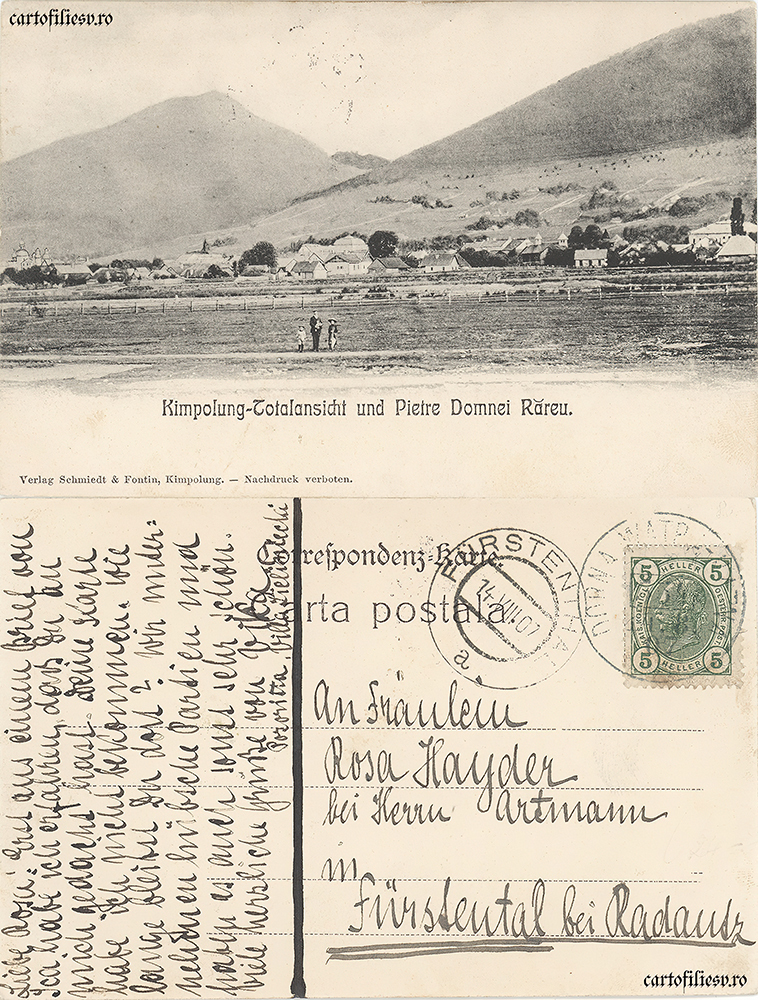 cartofiliesv.ro
Kimpolung-Totalansicht und Pietre Domnei Răreu.
Verlag Schmiedt & Fontin, Kimpolung. — Nachdruck verboten.
Correspondenz-Karte.
Carta postala.
FÜRSTENTHAL
14.VIII.07
a
DORNA WATRA
5 HELLER 5
KAIS. KOENIGL. OESTERR. POST
5 HELLER 5
An Fräulein
Rosa Hayder
bei Herrn Artmann
in
Fürstental bei Radautz
Liebe Rosa! Erst aus einem Brief von
Ica habe ich erfahren, dass Du an
mich gedacht hast. Deine Karte
habe ich nicht bekommen. Wie
lange bleibst Du dort? Wir unter-
nehmen hübsche Partien und
haben es auch sonst sehr schön.
Viele herzliche Grüße von
Pozoritta Villa
cartofiliesv.ro